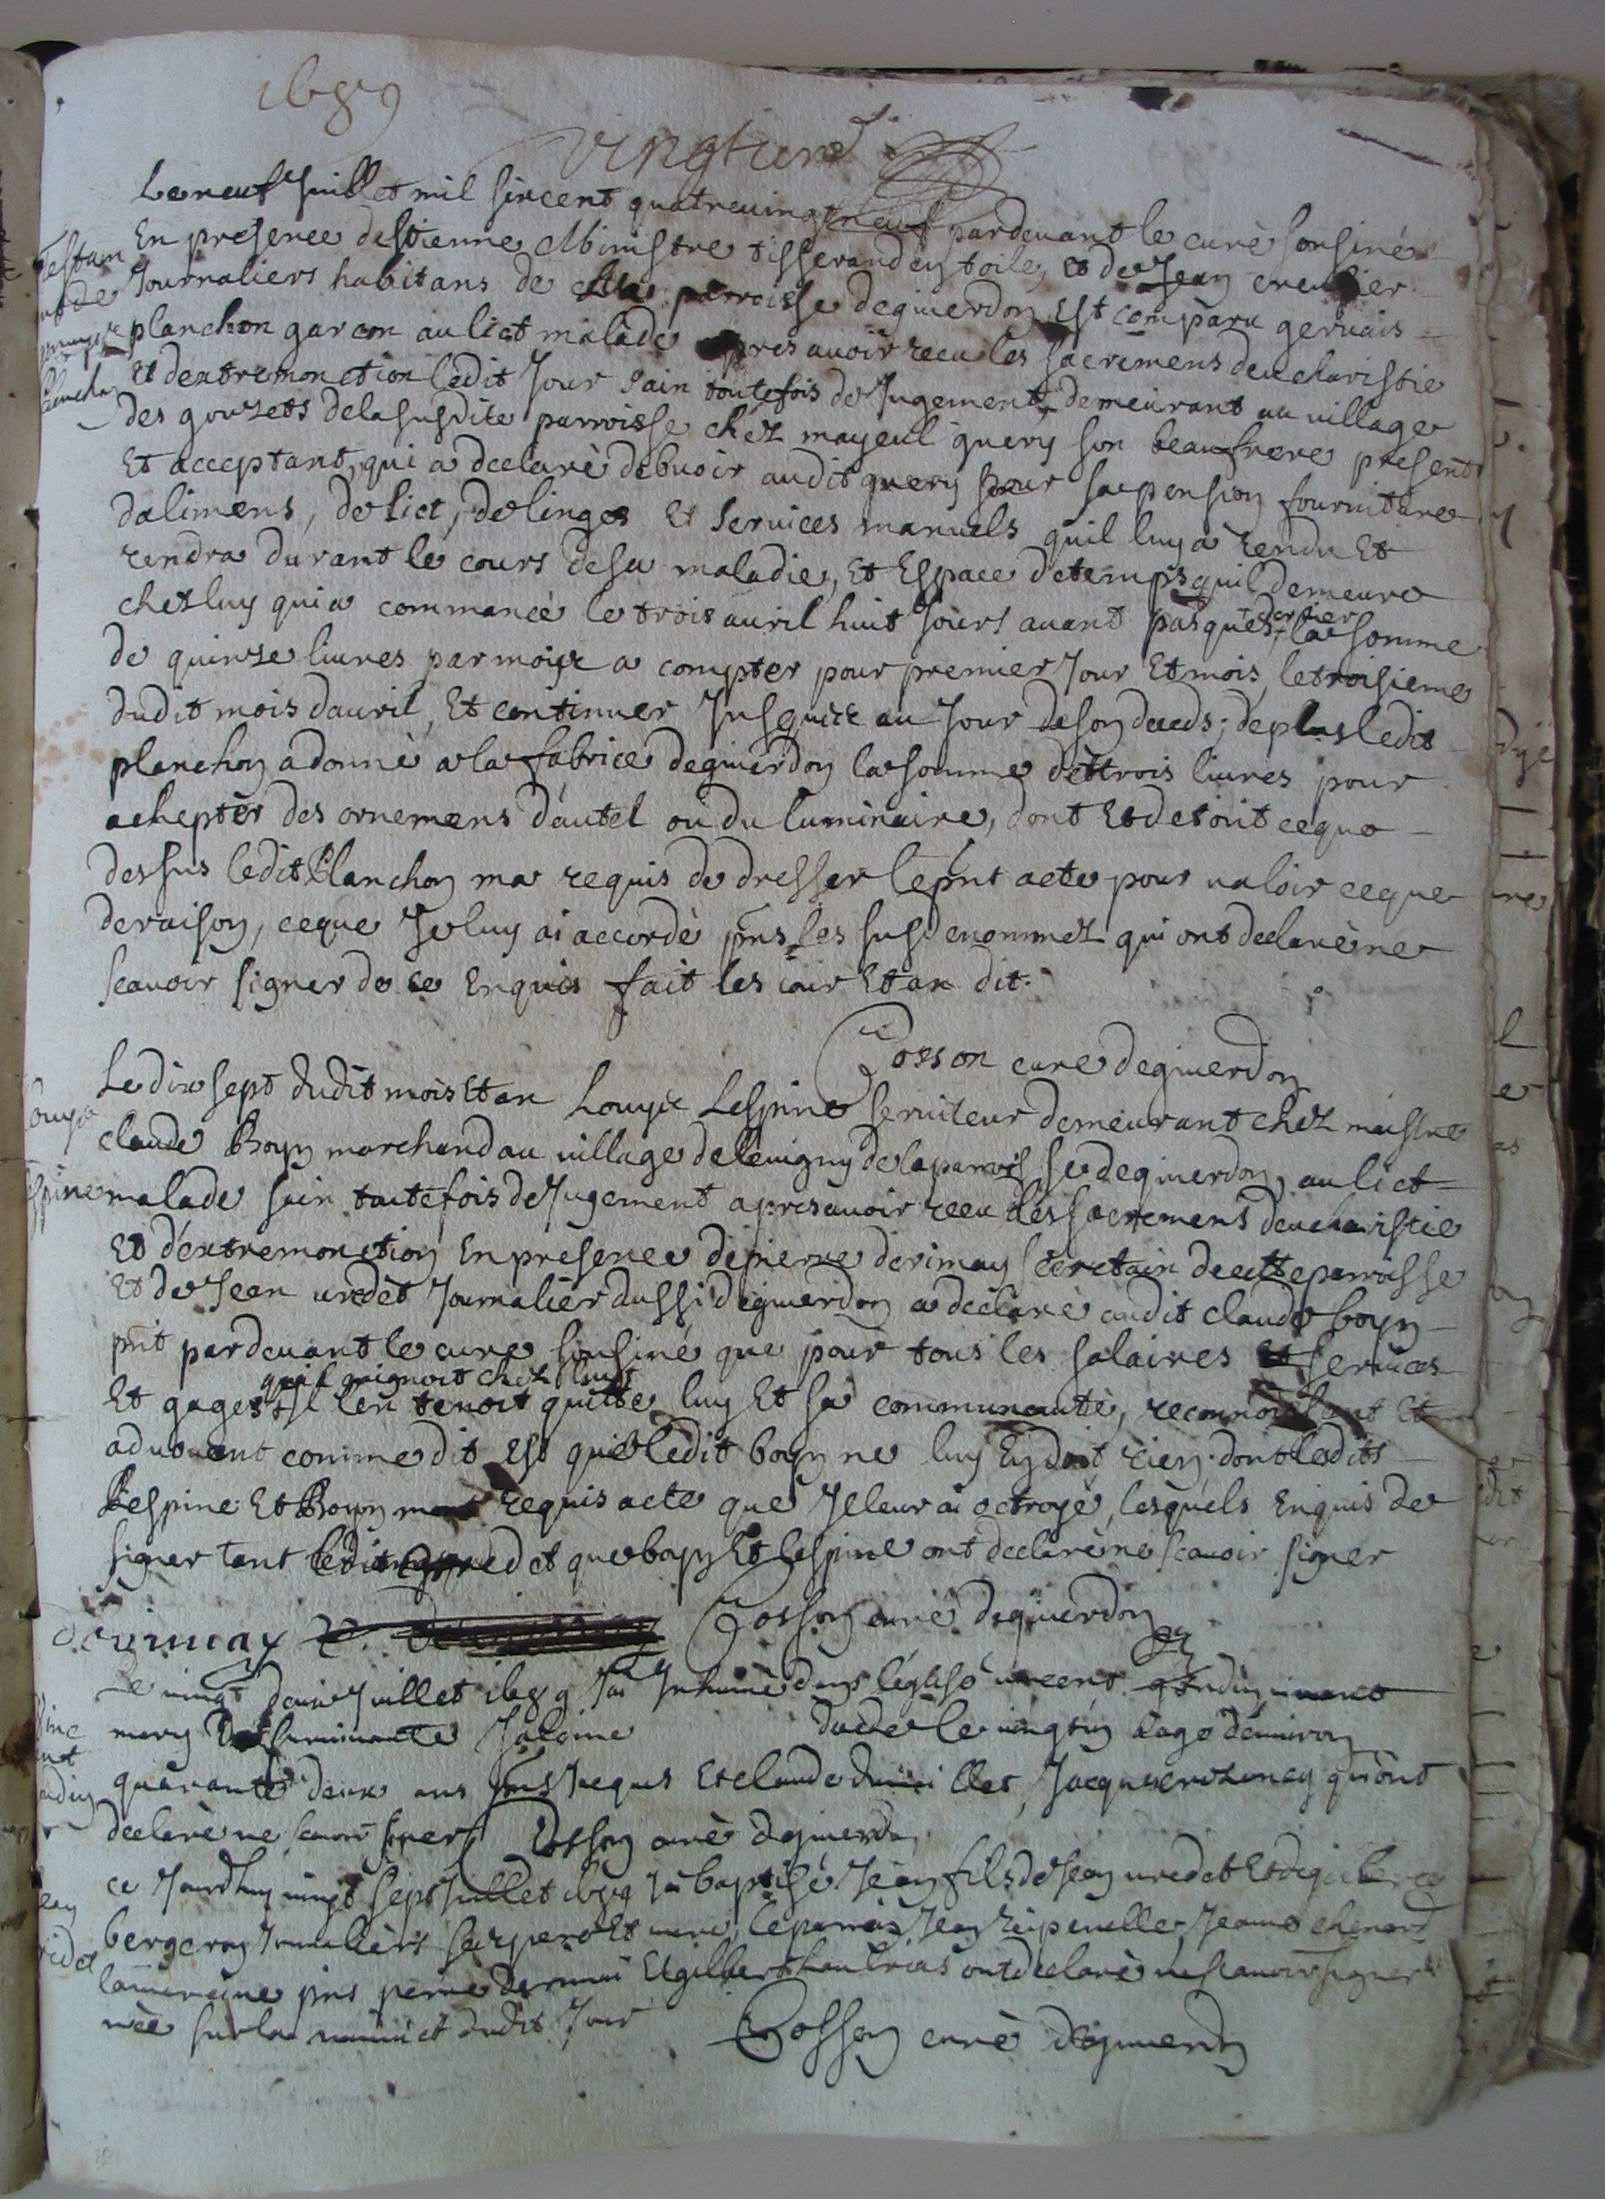 1689
vingtun
Le neuf Juillet mil sixcent quatrevingtneuf pardevant le curè sousiné
En presence destienne Ministre tisserand en toile, et de Jean creusier
Journaliers habitans de parroisse deguierdon Est comparu gervais
planchon garcon au lict malade apres avoir receu les sacremens deucharistie
Et dextremonction ledit Jour sain toutefois de Jugement, demeurant au village
des gouzets delasusdite parroisse chez mayeul query son beaufrere present
Et acceptant, qui a declarè debuoir audit query pour sa pension fourniture
dalimens, de lict, de linges Et services manuels quil luy a rendu Et
rendra durant le cours desa maladie, Et Espace detemps quil demeure
chez luy qui a commancè le trois avril huit Jours avant pasques dernier la somme
de quinze livres par moix a compter pour premier Jour Et mois, le troisieme
dudit mois davril, Et continuer Jusquice au Jour deson deceds; deplus ledit
planchon a donnè a la fabrice deguierdon la somme de trois livres pour
achepter des ornemens dautel ou du luminaire, dont Et de tout ceque
dessus ledit Planchon ma requis de dresser le pnt acte pour valoir ceque
deraison, ceque Je luy ai accordè pns les susdenommez qui ont declarè ne
scavoir signer de ce Enquis fait les iour Et an dit.
Cosson curè deguierdon
Le dix sept dudit mois Et an Louyx Lespine serviteur demeurant chez maistre
claude Boyn marchand au village delevigny de la parroisse deguierdon, au lict
malade sain toutefois de Jugement apres avoir receu les sacremens deucharistie
Et dextremonction En presence de pierre derimay secretain decette parroisse
Et de Jean uredet Journalier aussi deguierdon a declarè audit claude boyn
pnt pardevant le curè sousiné que pour tous les salaires Et services
Et gages quil gaignoit chez luy Il len tenoit quitte luy Et sa communautè, reconnoissant Et
advouent comme dit Est que ledit boyn ne luy En doit rien. dont lesdits
Lespine Et Boyn mont requis acte que Je leur ai octroyé, lesquels Enquis de
signer tant ledit uredet que boyn Et lespine ont declarè ne scavoir signer
derimay Cosson curè deguierdon
Le vingt deux Juillet 1689 Jai Inhumè dans léglise vincent gondin vivant
mary Jaloine dacde le vingtun aage denviron
quarante deux ans pns Jacques Et claude Jacques quiont
declarè ne scavoir siner Cosson curè deguierdon
ce Jourdhuy vingt sept Juillet 1689 Jai baptisé Jean fils de Jean uredet Et de gilberte
bergeron Journaliers ses pere Et mere, le parrain Jean Jeanne chenard
la marraine pns pierre Et gilbert ont declarè ne scavoir signer
née sur la dudit Jour
Cosson curè deguierdon